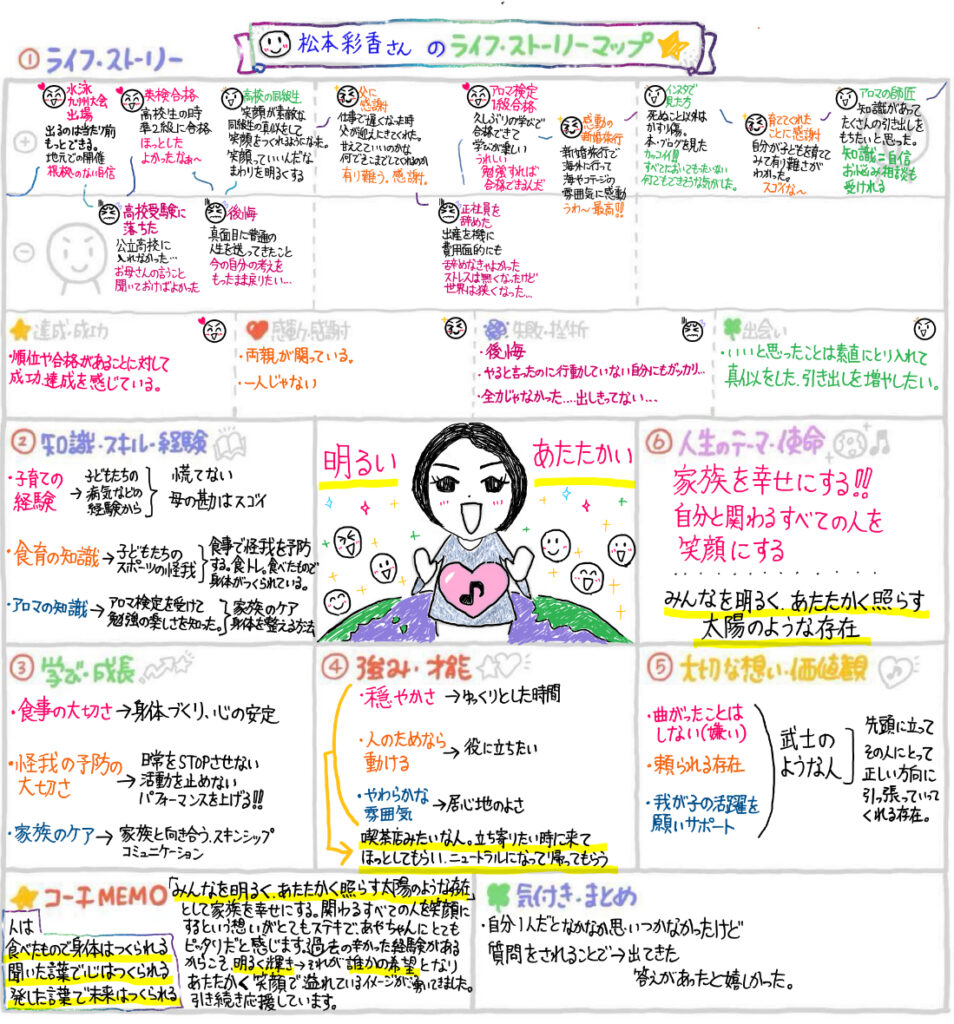 松本彩香さん のライフ・ストーリーマップ
① ライフ・ストーリー
水泳
九州大会
出場
出るのは当たり前
もっとできる。
地元での開催
根拠のない自信
英検合格
高校生の時
準2級に合格
ほっとした
よかったなぁ〜
高校の同級生
笑顔が素敵な
同級生の真似をして
笑顔をつくれるようになった。
笑顔っていいんだな
まわりを明るくする
父に
感謝
仕事で遅くなった時
父が迎えにきてくれた。
甘えてていいのかな
何でここまでしてくれるのか
有り難う。感謝。
アロマ検定
1級合格
久しぶりの学びで
合格できて
学びが楽しい
うれしい
勉強すれば
合格できるんだ
感動の
新婚旅行
新婚旅行で
海外に行って
海やコテージの
雰囲気に感動
うわ〜最高!!
インスタで
見た方
死ぬこと以外は
かすり傷。
本・ブログを観た
カッコイイ!!
すべてにおいても失いない
何でもできそうな気がした。
育ててくれた
ことに感謝
自分が子どもを育て
みて有り難さが
わかった。
スゴイな〜
アロマの師匠
知識があって
たくさんの引き出しを
もちたいと思った。
知識=自信
お悩み相談も
受けれる
高校受験に
落ちた
公立高校に
入れなかった…
お母さんの言うこと
聞いておけばよかった
後悔
真面目に普通の
人生を送ってきたこと
今の自分の考えを
もったまま戻りたい…
正社員を
辞めた
出産を機に
費用面的にも
辞めなきゃよかった
ストレスは無くなったけど
世界は狭くなった…
達成・成功
・順位や合格があることに対して
成功、達成を感じている。
感動・感謝
・両親が関っている。
・一人じゃない
失敗・挫折
・後悔
・やると言ったのに行動していない自分にもがっかり…
・全力じゃなかった…。出しきってない…
出会い
・いいと思ったことは素直にとり入れて
真似をした、引き出しを増やしたい。
② 知識・スキル・経験
・子育ての
経験
→ 子どもたちの
病気などの
経験から
慌てない
母の勘はスゴイ
・食育の知識→子どもたちの
スポーツの怪我
食事で怪我を予防
する。食トレ。食べたもので
身体がつくられている。
・アロマの知識→アロマ検定を受けて
勉強の楽しさを知った。
家族のケア
身体を整える方法
明るい
あたたかい
⑥ 人生のテーマ・使命
家族を幸せにする!!
自分と関わるすべての人を
笑顔にする
みんなを明るく、あたたかく照らす
太陽のような存在
③ 学び・成長
・食事の大切さ→身体づくり、心の安定
・怪我の予防の
大切さ
→ 日常をSTOPさせない
活動を止めない
パフォーマンスを上げる!!
・家族のケア→ 家族と向き合う、スキンシップ
コミュニケーション
④ 強み・才能
・穏やかさ→ゆっくりとした時間
・人のためなら
動ける
→役に立ちたい
・やわらかな
雰囲気
→居心地のよさ
喫茶店みたいな人。立ち寄りたい時に来て
ほっとしてもらい、ニュートラルになって帰ってもらう
⑤ 大切な想い・価値観
・曲がったことは
しない(嫌い)
・頼られる存在
・我が子の活躍を
願いサポート
武士の
ような人
先頭に立って
その人にとって
正しい方向に
引っ張っていって
くれる存在。
コーチMEMO
人は
食べたもので身体はつくられる
聞いた言葉で心はつくられる
発した言葉で未来はつくられる
「みんなを明るく、あたたかく照らす太陽のような存在」
として家族を幸せにする。関わるすべての人を笑顔に
するという想いがとてもステキで、あやちゃんにとても
ピッタリだと感じます。過去の辛かった経験がある
からこそ、明るく輝き→それが誰かの希望となり
あたたかく笑顔で溢れているイメージが湧いてきました。
引き続き応援しています。
気付き・まとめ
・自分1人だとなかなか思いつかなかったけど
質問をされることで→出てきた
答えがあったと嬉しかった。